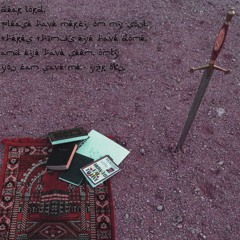 dear lord,
please have mercy on my soul,
theres things eye have done,
and eye have seen. only
you can save me.